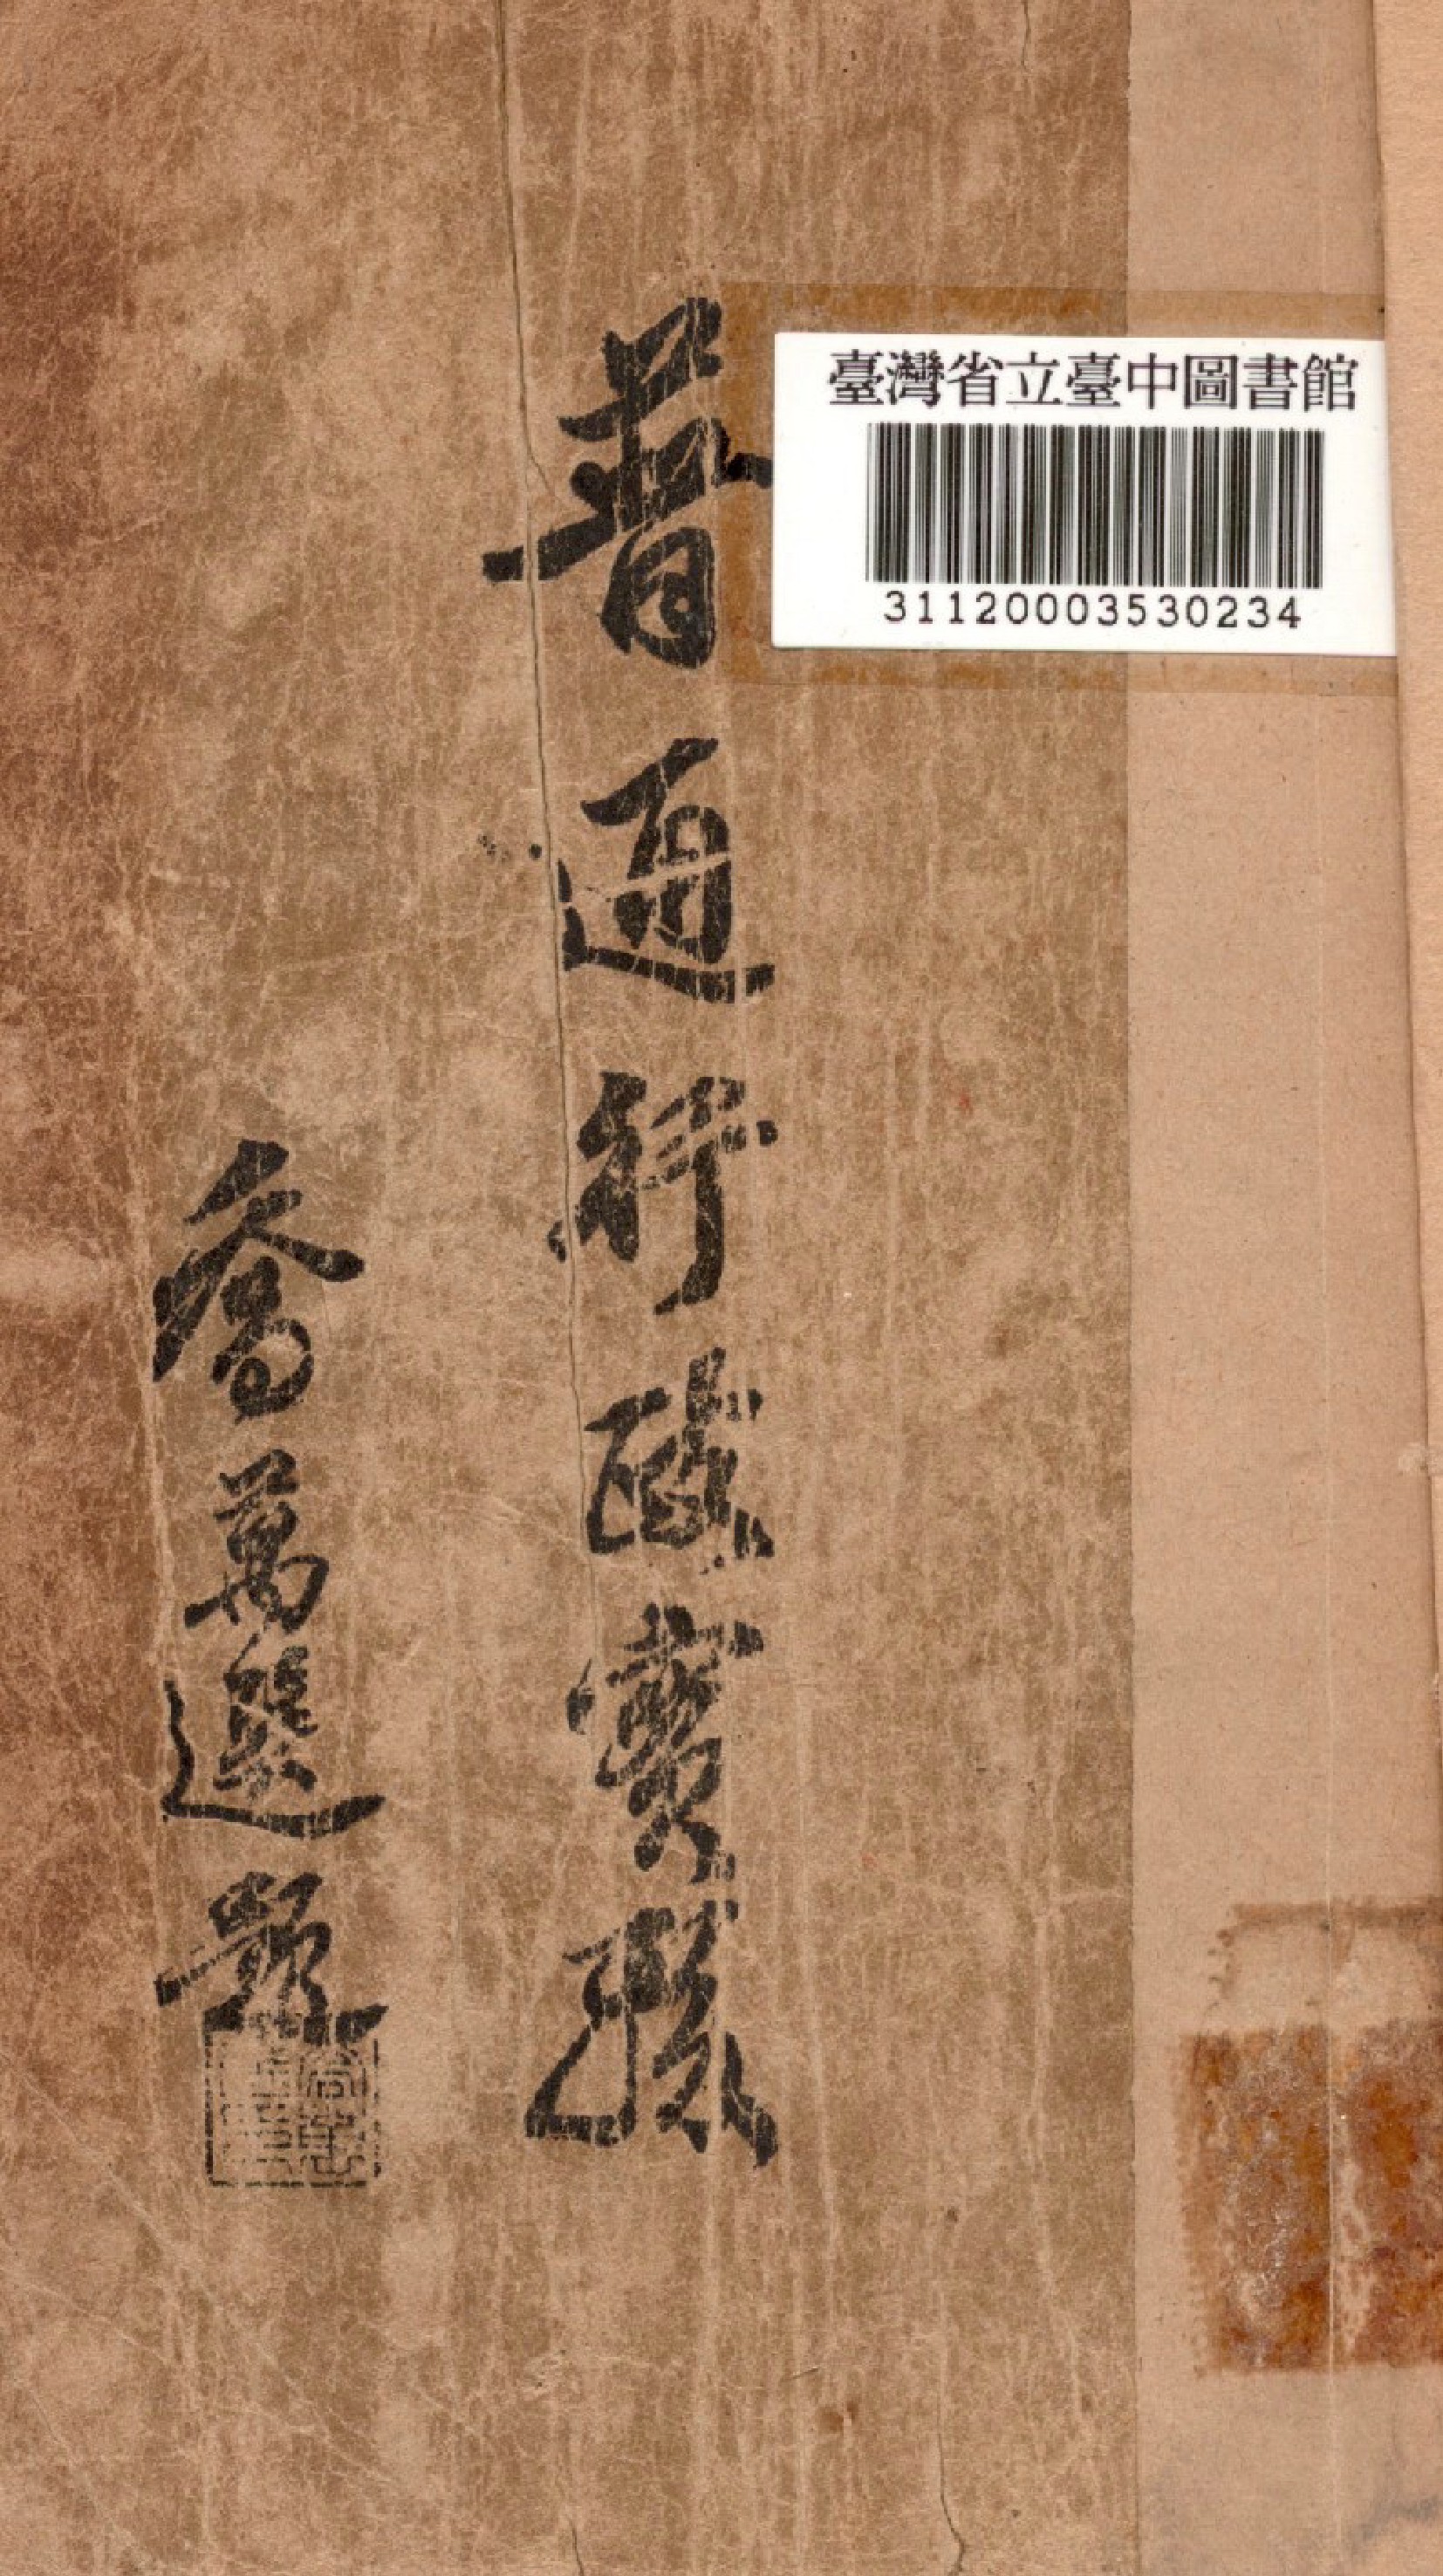 臺灣省立臺中圖書館
31120003530234
普通行政實務
喬萬選題